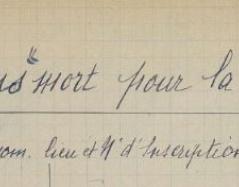 us" mort pour la
om. lieu et N° d'Inscription